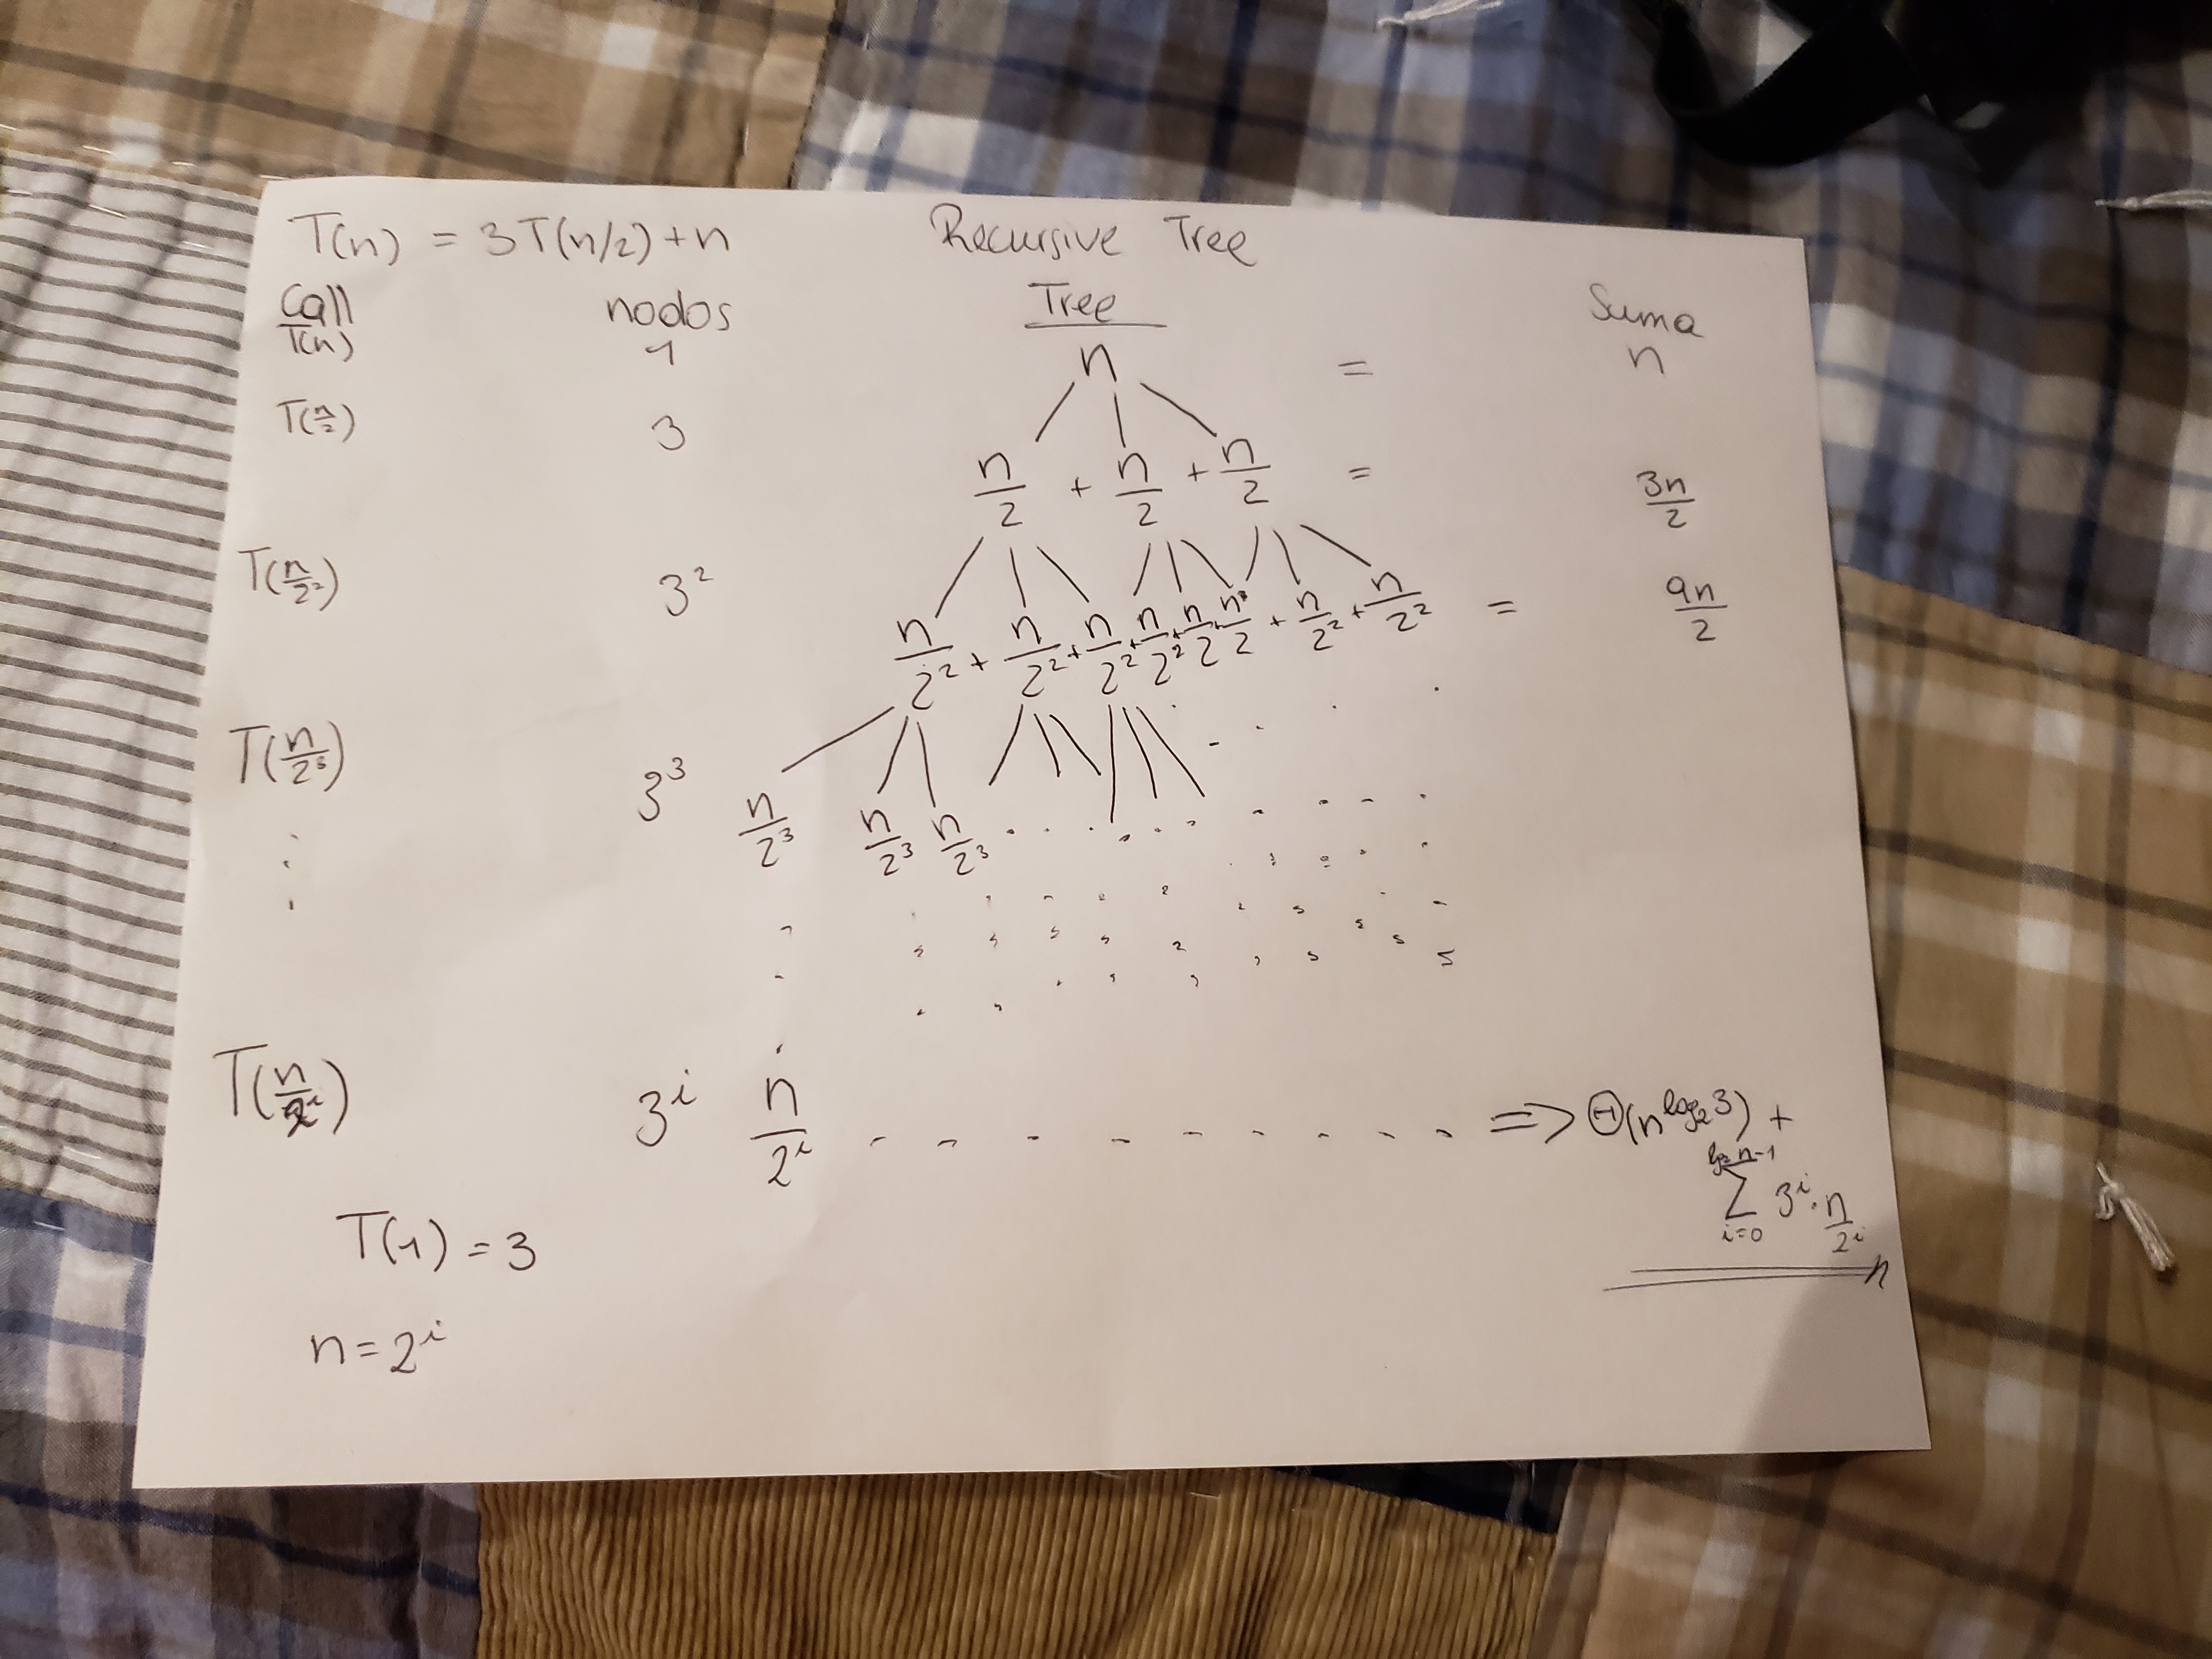 T(n) = 3T(n/2)+n Recursive Tree
Call nodos Tree Suma
T(n) 1 n = n
T(n/2) 3 n/2 + n/2 + n/2 = 3n/2
T(n/2²) 3² n/2² + n/2² + n/2² + n/2² + n/2² + n/2 + n/2² + n/2² = 9n/2
T(n/2³) 3³ n/2³ n/2³ n/2³
T(n/2ⁱ) 3ⁱ n/2ⁱ => Θ(n^log₂3) +
∑ i=0 log₂n-1 3ⁱ · n/2ⁱ
T(1) = 3
n = 2ⁱ